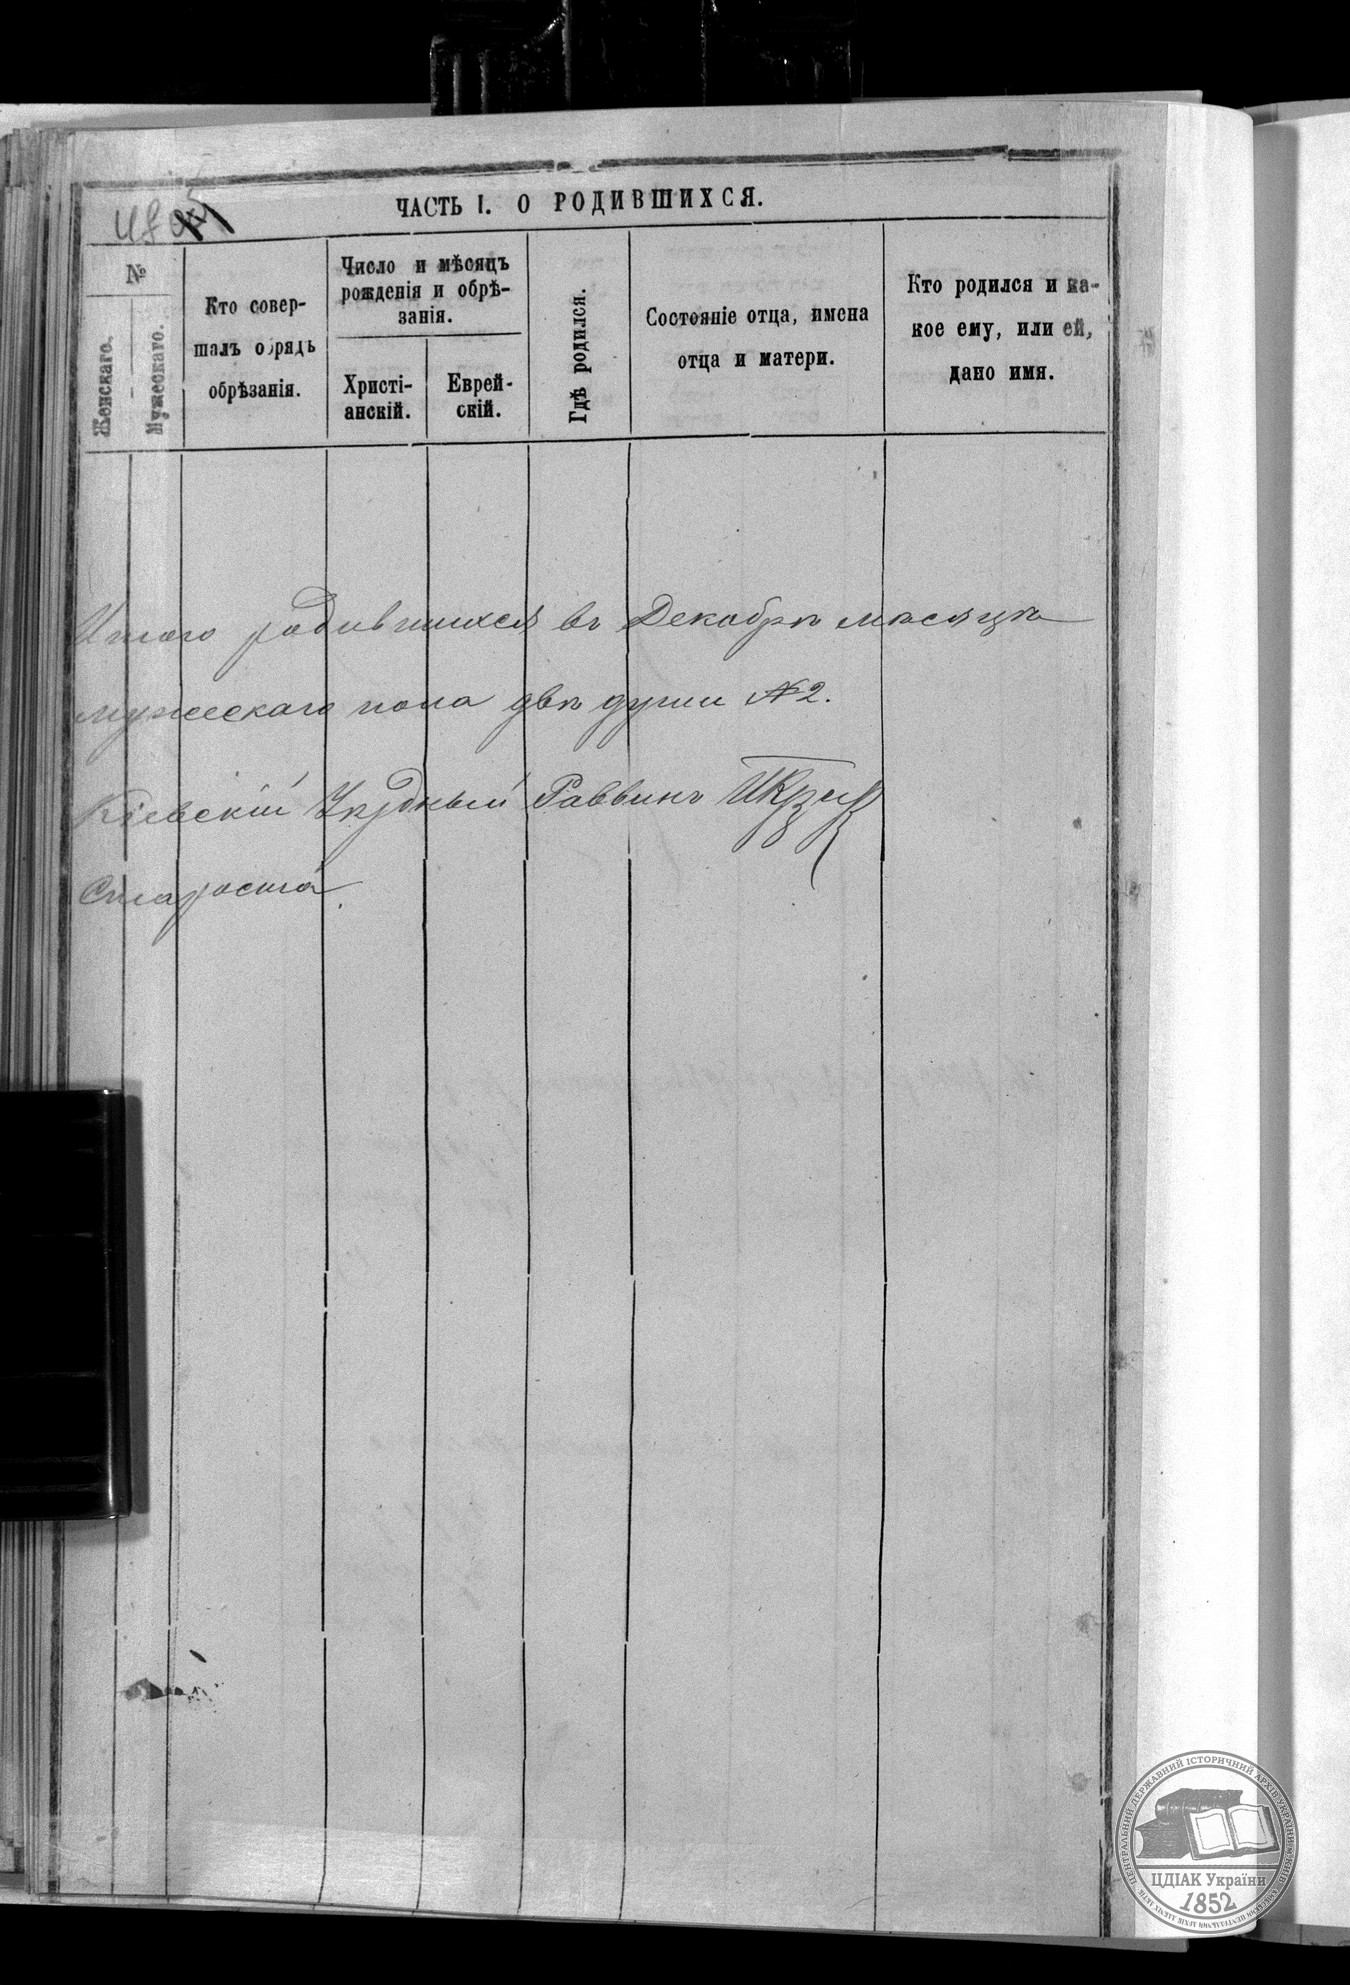 ЧАСТЬ I. О РОДИВШИХСЯ.
№
Женскаго.
Мужескаго.
Кто совер-
шалъ обрядъ
обрѣзанія.
Число и мѣсяцъ
рожденія и обрѣ-
занія.
Христі-
анскій.
Еврей-
скій.
Гдѣ родился.
Состояніе отца, имена
отца и матери.
Кто родился и ка-
кое ему, или ей,
дано имя.
Итого родившихся въ Декабрѣ мѣсяцѣ
мужескаго пола двѣ души №2.
Кіевскій Уѣздный Раввинъ
Староста
ЦЕНТРАЛЬНИЙ ДЕРЖАВНИЙ ІСТОРИЧНИЙ АРХІВ УКРАЇНИ
ЦДІАК України
1852